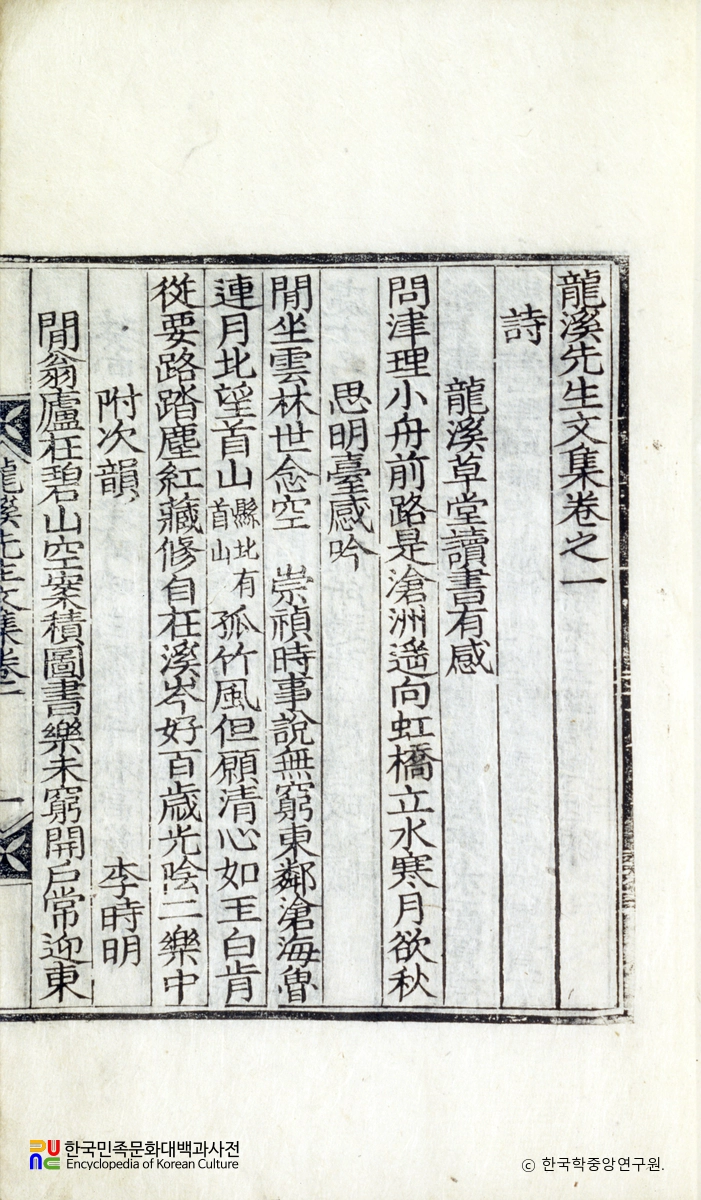 龍溪先生文集卷之一
詩
龍溪草堂讀書有感
問津理小舟前路是滄洲遙向虹橋立水寒月欲秋
思明臺感吟
閒坐雲林世念空 崇禎時事說無窮東鄰滄海魯
連月北望首山縣北有首山孤竹風但願清心如玉白肯
從要路踏塵紅藏修自在溪岑好百歲光陰二樂中
附次韻 李時明
閒翁廬在碧山空案積圖書樂未窮開戶常迎東
龍溪先生文集卷一 一
한국민족문화대백과사전
Encyclopedia of Korean Culture
© 한국학중앙연구원.